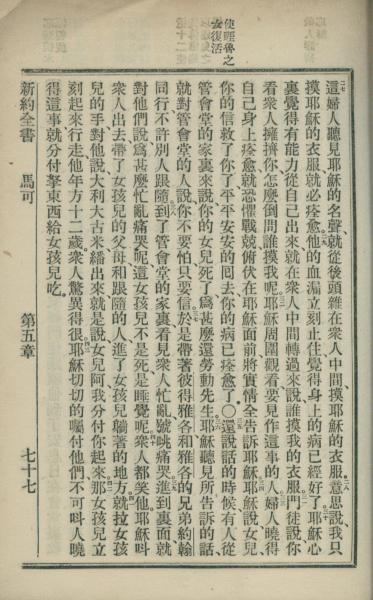 使睚魯之
女復活
這婦人聽見耶穌的名聲、就從後頭雜在衆人中間、摸耶穌的衣服、意思說、我只
摸耶穌的衣服、就必痊愈、他的血漏立刻止住、覺得身上的病已經好了、耶穌心
裏覺得有能力從自己出來、就在衆人中間轉過來說、誰摸我的衣服、門徒說、你
看衆人擁擠你、怎麼倒問誰摸我呢、耶穌周圍觀看、要見作這事的人、婦人曉得
自己身上痊愈、就恐懼戰兢、俯伏在耶穌面前、將實情全告訴耶穌、耶穌說、女兒、
你的信救了你了、平平安安的囘去、你的病已痊愈了。○還說話的時候、有人從
管會堂的家裏來說、你的女兒死了、爲甚麼還勞動先生、耶穌聽見所告訴的話、
就對管會堂的人說、你不要怕、只要信、於是帶著彼得雅各和雅各的兄弟約翰
同行、不許別人跟隨、到了管會堂的家裏、看見衆人忙亂、號咷痛哭、進到裏面就
對他們說、爲甚麼忙亂痛哭呢、這女孩兒不是死、是睡覺呢、衆人都笑他、耶穌呌
衆人出去、帶了女孩兒的父母、和跟隨的人、進了女孩兒躺著的地方、就拉女孩
兒的手、對他說、大利大古米、繙出來就是說、女兒阿、我分付你起來、那女孩兒立
刻起來行走、他年方十二歲、衆人驚異得很、耶穌切切的囑付他們、不可呌人曉
得這事、就分付拏東西給女孩兒吃。
新約全書 馬可 第五章 七十七